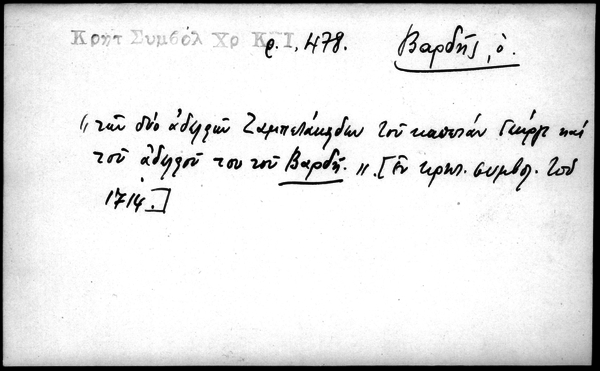 Κρητ Συμβόλ Χρ ΚΓΙ ρ., 478. Βαρδῆς, ὁ.
"τῶν δύο ἀδελφῶν Ζαμπελάκιδων τοῦ καπετάν Γεώργι καί
τοῦ ἀδελφοῦ του τοῦ Βαρδῆ." [Ἐν κρητ. συμβολ. τοῦ
1714.]